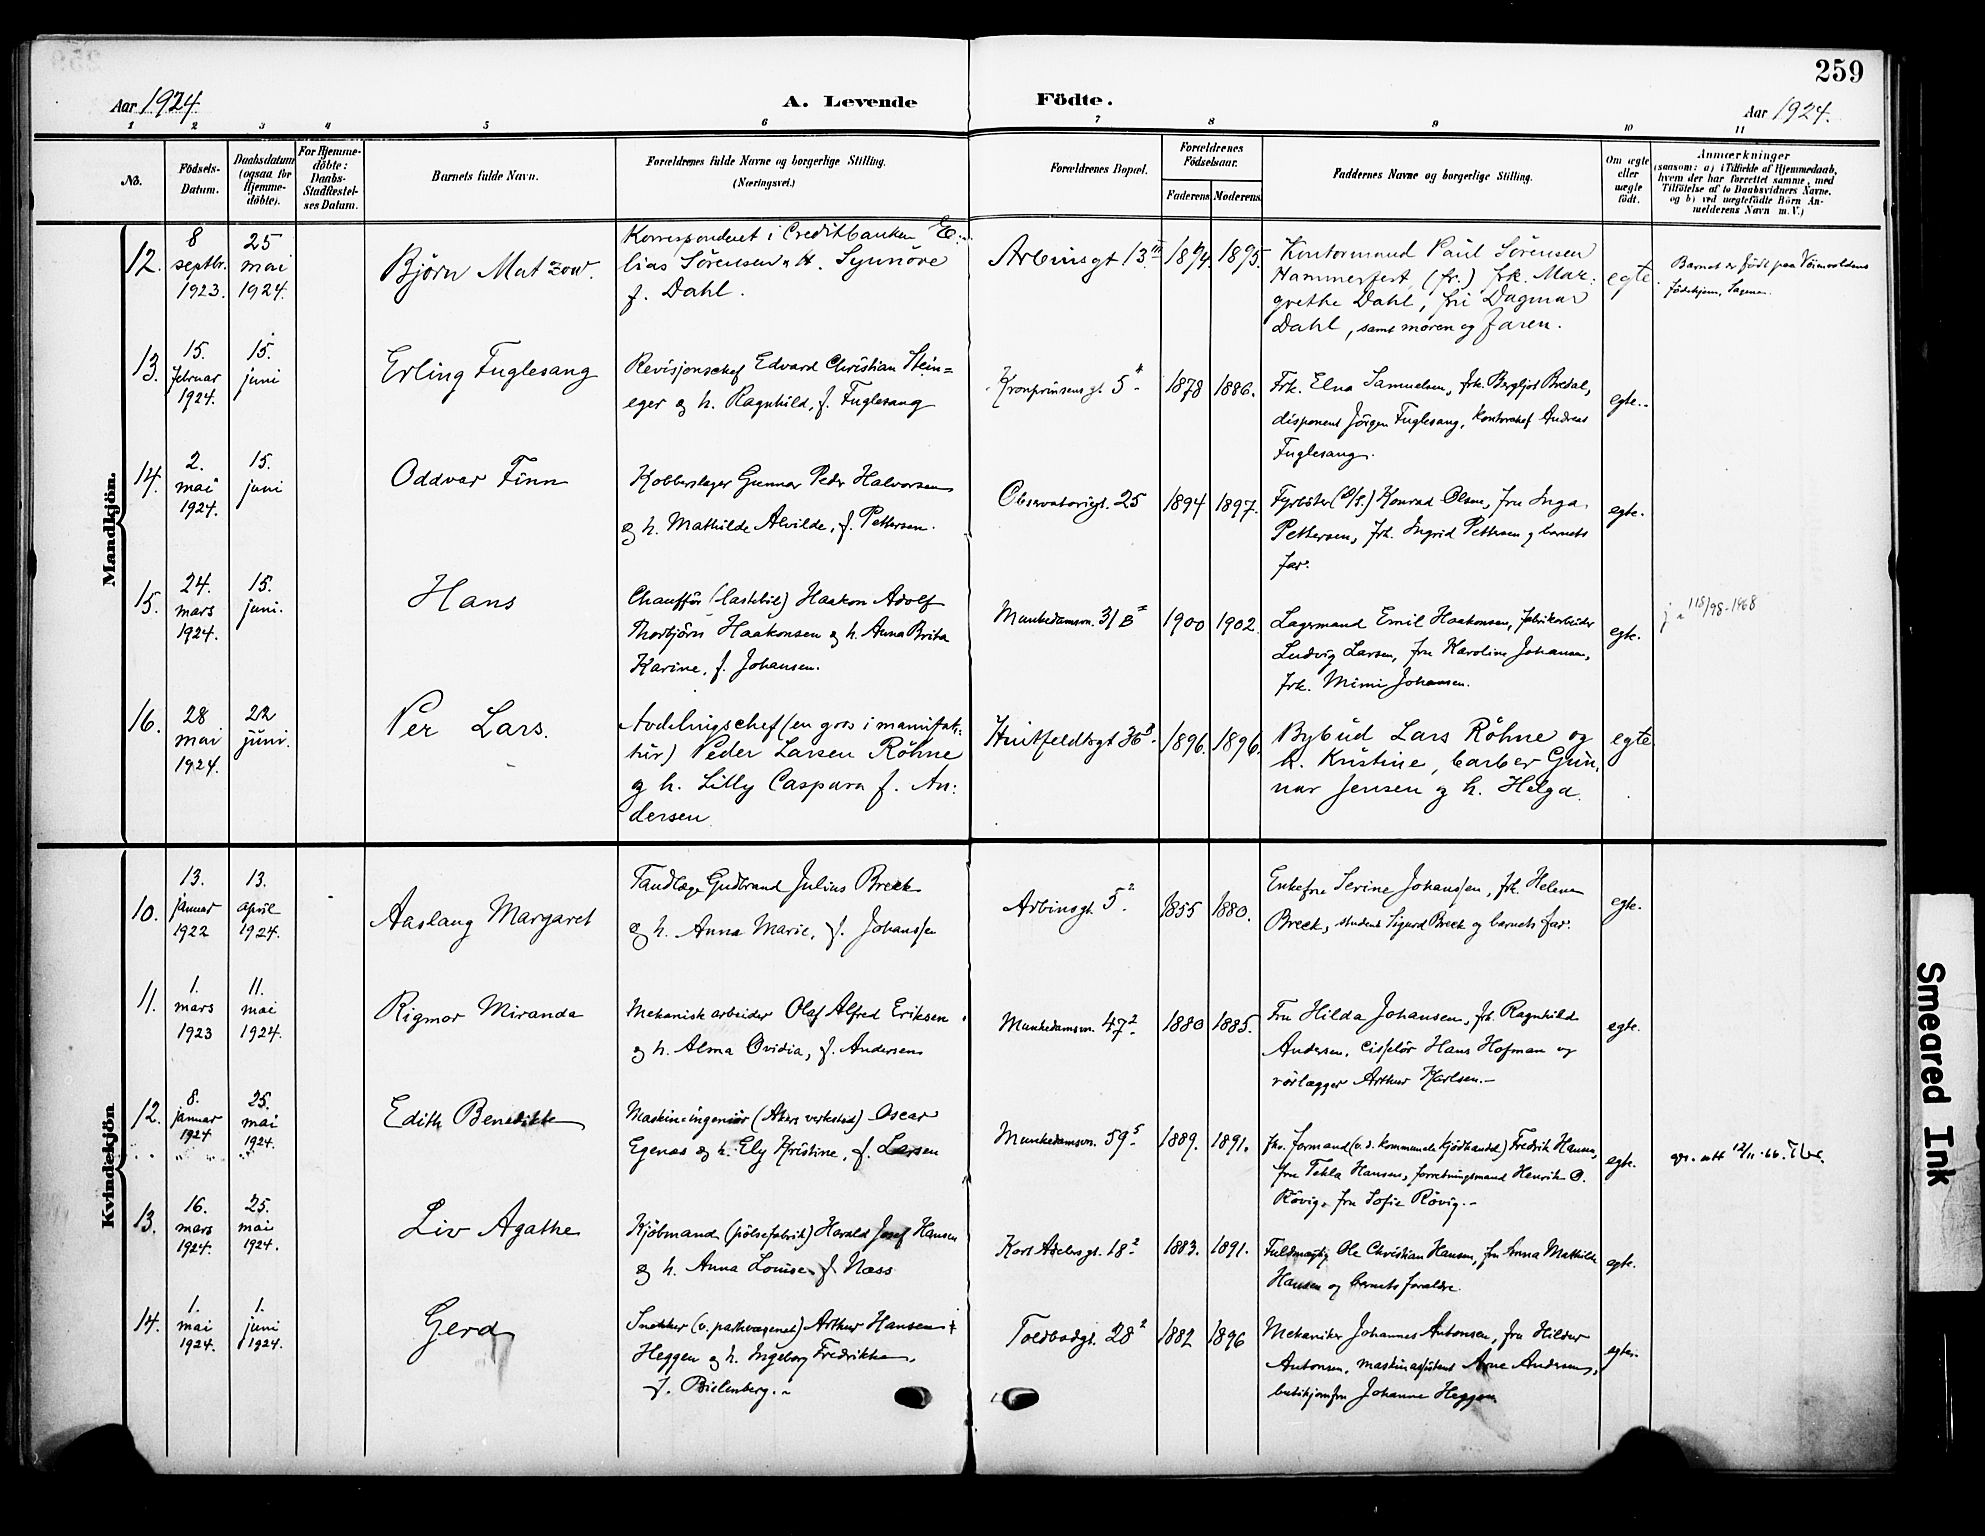 259
Aar 1924.
A. Levende Födte.
Aar 1924.
1 2 3 4 5 6 7 8 9 10 11
No.
Födsels-
Datum.
Daabsdatum
(ogsaa for
Hjemme-
döbte).
For Hjemme-
döbte:
Daabs-
Stadfæstel-
ses Datum.
Barnets fulde Navn.
Forældrenes fulde Navne og borgerlige Stilling.
(Næringsvei.)
Forældrenes Bopæl.
Forældrenes
Födselsaar.
Faderens
Moderens
Faddernes Navne og borgerlige Stilling.
Om ægte
eller
uægte
födt.
Anmærkninger
(saasom: a) i Tilfælde af Hjemmedaab,
hvem der har forrettet samme, med
Tilföielse af to Daabsvidners Navne,
og b) ved uægtefödte Börn An-
melderens Navn m. V.)
Mandkjön.
12.
8
septbr.
1923.
25
mai
1924.
Björn Matzow.
Korrespondent i Creditbanken E-
lias Sörensen o. H. Synnöve
f. Dahl.
Arbinsgt 13 III
1894.
1895.
Kontormand Paul Sörensen
Hammerfest, (fr.) frk. Mar-
grethe Dahl, fru Dagmar
Dahl, samt moren og faren.
egte.
Barnet er födt paa Vöienvoldens
födehjem, Sagene.
13.
15.
februar
1924.
15.
juni
Erling Fuglesang
Revisjonschef Edvard Christian Stein=
eger og h. Ragnhild, f. Fuglesang
Kronprinsens gt. 5
1878
1886.
Frk. Elna Samuelsen, frk. Bergljot Bredal,
disponent Jörgen Fuglesang, kontorchef Andreas
Fuglesang.
egte.
14.
2.
mai
1924.
15.
juni
Oddvar Finn
Kobberslager Gunnar Peder Halvorsen
og h. Mathilde Alvilde, f. Pettersen.
Observatoriegt. 25
1894
1897.
Fyrböter (D/S.) Konrad Olsen, fru Inga
Pettersen, frk. Ingrid Pettersen og barnets
far.
egte.
15.
24.
mars
1924.
15.
juni.
Hans
Chaufför (lastebil) Haakon Adolf
Thorbjörn Haakonsen og h. Anna Brita
Karine, f. Johansen.
Munkedamsvn. 31 B II
1900
1902.
Lagermand Emil Haakonsen, fabrikarbeider
Ludvig Larsen, fru Karoline Johansen,
frk. Mimi Johansen.
egte.
118/98-1968
16.
28
mai
1924.
22
juni.
Per Lars.
Avdelingschef (en gros i manufak-
tur) Peder Larsen Röhne
og h. Lilly Caspara f. An-
dersen
Huitfeldtsgt 36 3.
1896.
1896.
Bybud Lars Röhne og
h. Kristine, barber Gun-
nar Jensen og h. Helga.
egte.
Kvindekjön
10.
13.
januar
1922
13.
april
1924.
Aaslaug Margaret
Tandlæge Gudbrand Julius Breck
og h. Anna Marie, f. Johanssen
Arbinsgt. 5 2.
1855
1880.
Enkefru Serine Johanssen, frk. Helene
Breck, student Sigurd Breck og barnets far.
egte.
11.
1.
mars
1923
11.
mai
1924.
Rigmor Miranda
Mekanisk arbeider Olaf Alfred Eriksen
og h. Alma Ovidia, f. Andersen
Munkedamsvn. 47 2.
1880
1885.
Fru Hilda Johansen, frk. Ragnhild
Andersen, ciselör Hans Hofman og
rörlægger Arthur Karlsen.-
egte.
12.
8.
januar
1924
25.
mai
1924.
Edith Benedikte
Maskiningeniör (Akers verksted) Oscar
Egenæs og h. Ely Kristine, f. Larsen
Munkedamsvn. 59 5.
1889.
1891.
formand (v. d. kommunale kjödhandel) Fredrik Hansen,
fru Tekla Hansen, forretningsmand Henrik O.
Rövig, fru Sofie Rövig.-
egte.
12/11.66.
13.
16.
mars
1924.
25.
mai
1924.
Liv Agathe
Kjöbmand (pölsefabrik) Harald Josef Hansen
og h. Anna Louise f. Næss
Kort Adelersgt. 18 2.
1883.
1891.
Fuldmægtig Ole Christian Hansen, fru Anna Mathilde
Hansen og barnets forældre.
egte.
14.
1.
mai
1924.
1.
juni
1924.
Gerd
Snekker (v. parkvæsenet) Arthur Hansen
Heggen og h. Ingeborg Fredrikke,
f. Bielenberg.-
Toldbodgt. 28 2
1882
1896
Mekaniker Johannes Antonsen, fru Hildur
Antonsen, maskinassistent Arne Andersen,
Johanne Heggen
egte.
Smeared Ink